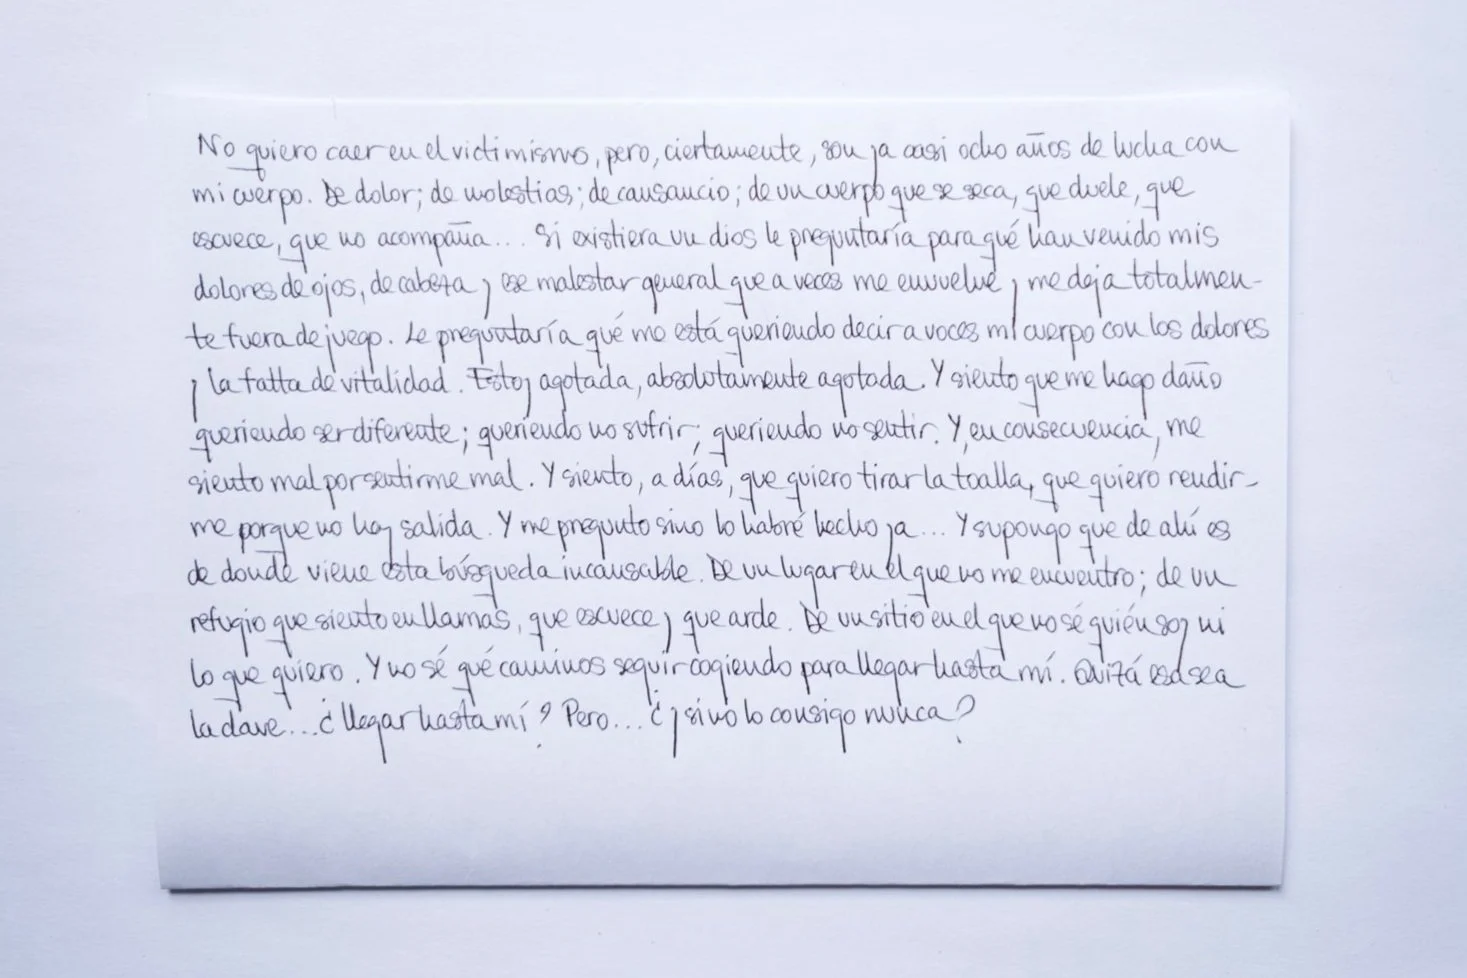 No quiero caer en el victimismo, pero, ciertamente, son ya casi ocho años de lucha con
mi cuerpo. De dolor; de molestias; de cansancio; de un cuerpo que se seca, que duele, que
escuece, que no acompaña... Si existiera un dios le preguntaría para qué han venido mis
dolores de ojos, de cabeza y ese malestar general que a veces me envuelve y me deja totalmen-
te fuera de juego. Le preguntaría qué me está queriendo decir a voces mi cuerpo con los dolores
y la falta de vitalidad. Estoy agotada, absolutamente agotada. Y siento que me hago daño
queriendo ser diferente; queriendo no sufrir; queriendo no sentir. Y, en consecuencia, me
siento mal por sentirme mal. Y siento, a días, que quiero tirar la toalla, que quiero rendir-
me porque no hay salida. Y me pregunto si no lo habré hecho ya... Y supongo que de ahí es
de donde viene esta búsqueda incansable. De un lugar en el que no me encuentro; de un
refugio que siento en llamas, que escuece y que arde. De un sitio en el que no sé quién soy ni
lo que quiero. Y no sé qué caminos seguir cogiendo para llegar hasta mí. Quizá esa sea
la clave... ¿llegar hasta mí? Pero... ¿y si no lo consigo nunca?